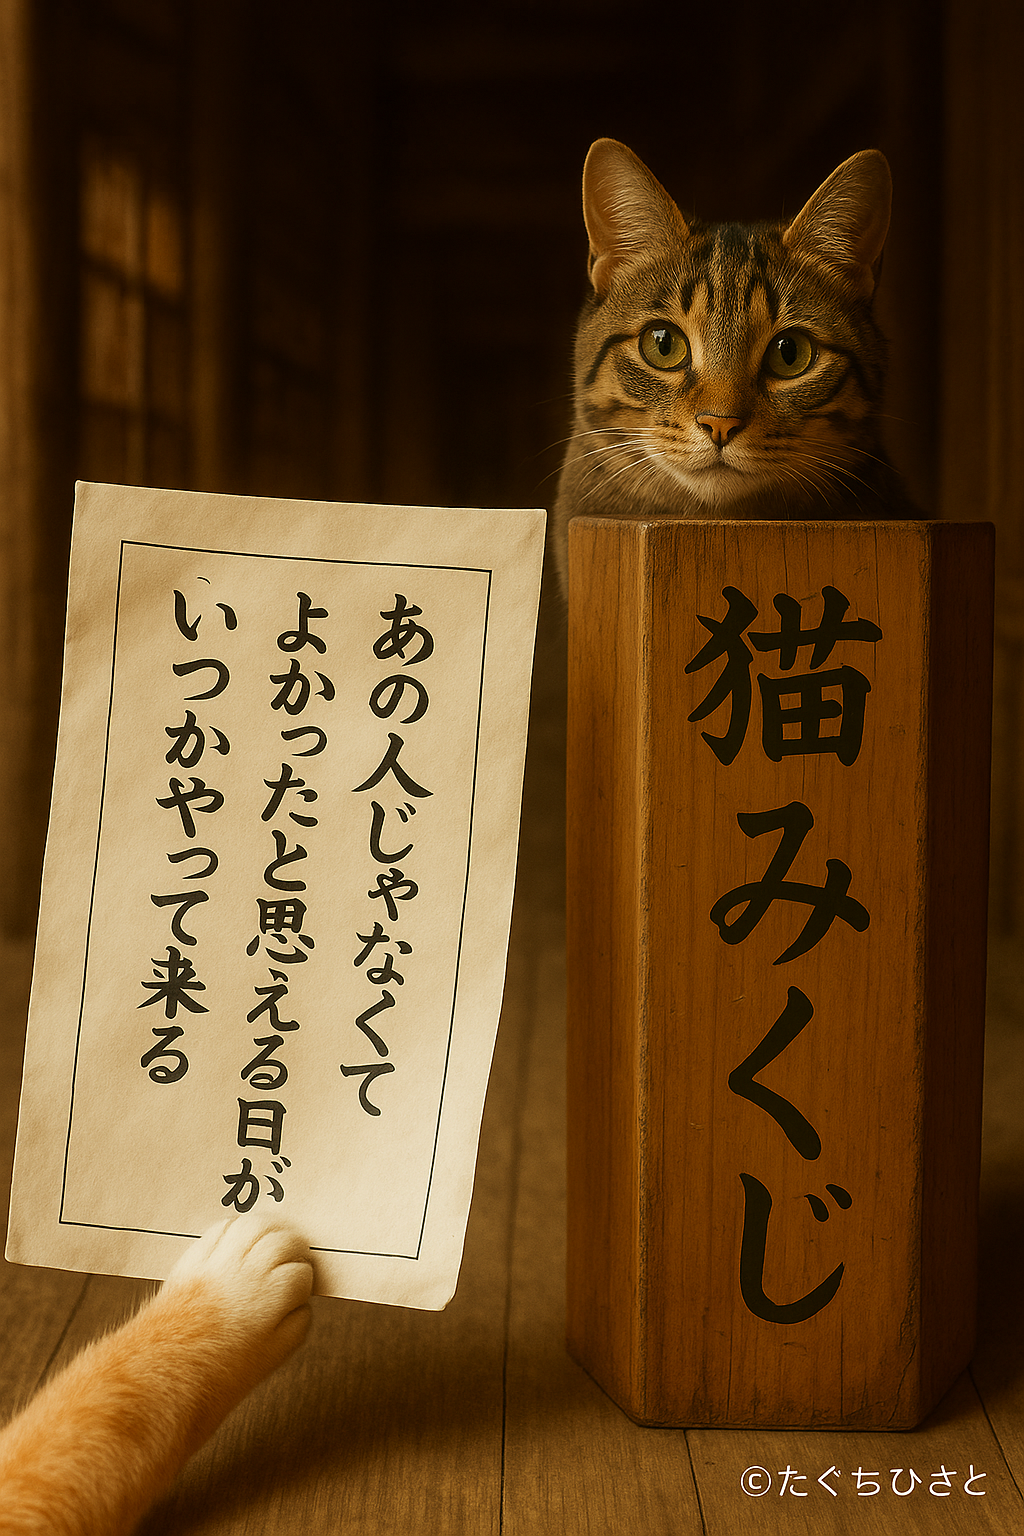 あの人じゃなくて
よかったと思える日が
いつかやって来る
猫みくじ
©たぐちひさと